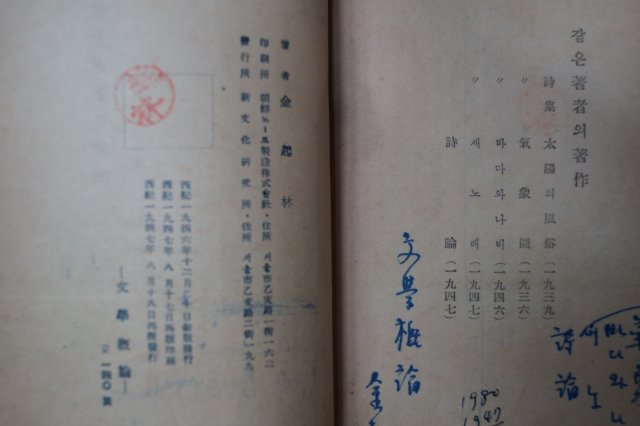 갈은著者의著作
詩集 太陽의風俗 (一九三九)
〃 氣象圖 (一九三六)
〃 바다와나비 (一九四六)
〃 새노래 (一九四七)
詩論 (一九四七)
文學概論
金
1980
1947
바다와나
새노
詩論
著者 金起林
印刷所 朝鮮노ー트製造株式會社・住所 서울市乙支路一街一六二
發行所 新文化硏究所・住所 서울市乙支路二街一九九
西紀一九四六年十二月 日初版發行
西紀一九四七年 八月十七日再版印刷
西紀一九四七年 八月十八日再版發行
―文學槪論―
一四〇